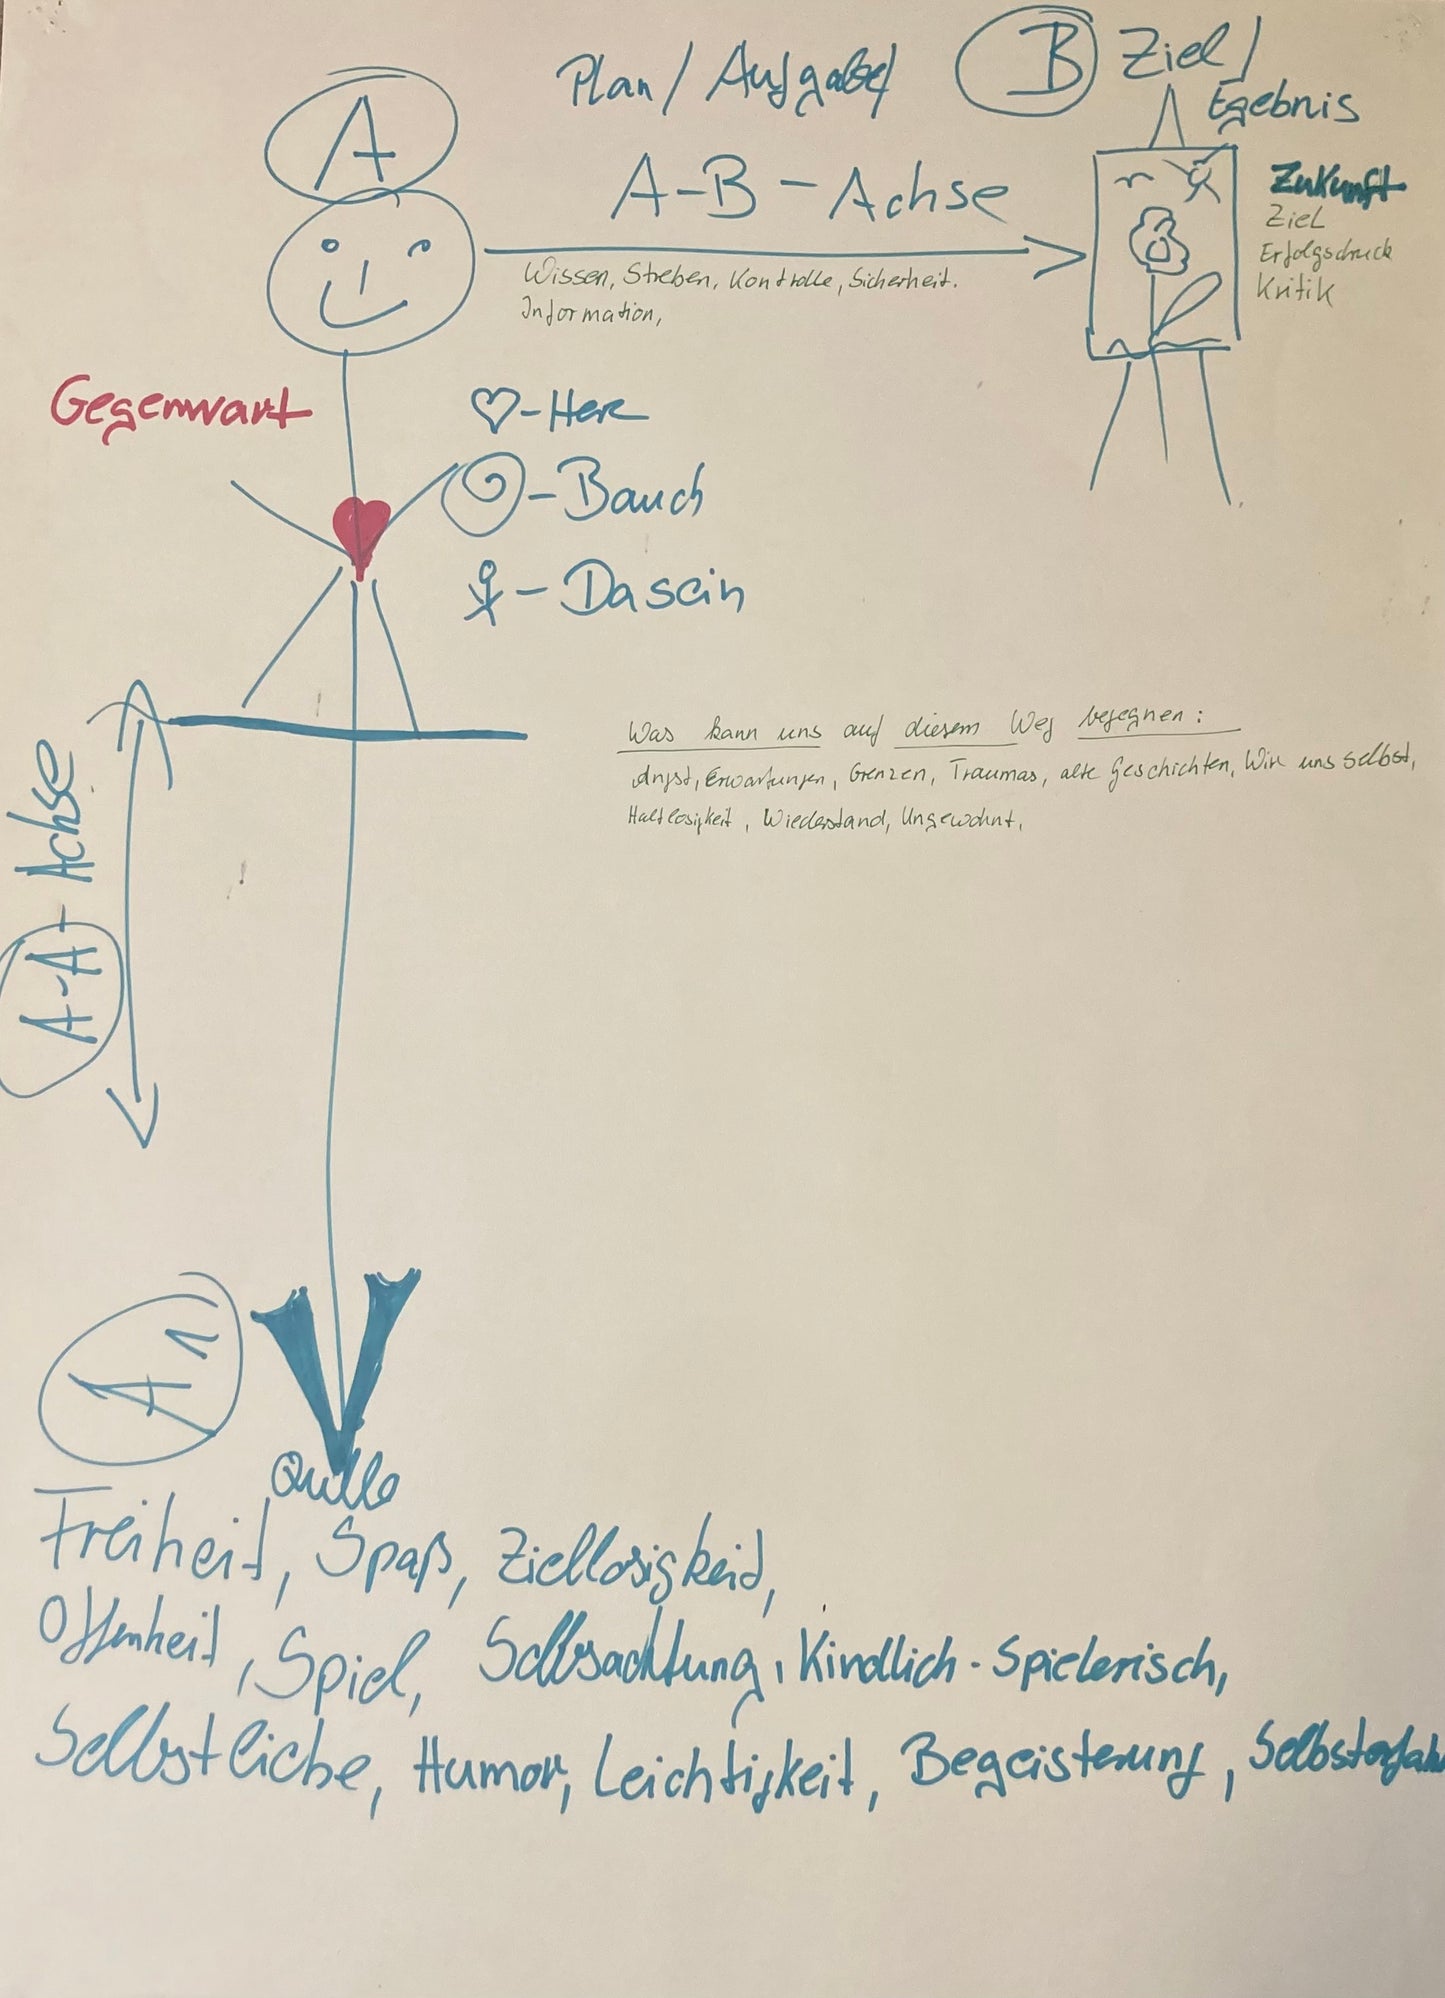 A
Plan / Aufgabe/
B Ziel /
Egebnis
A-B-Achse
Zukunft
Ziel
Erfolgsdruck
Kritik
Wissen, Streben, Kontrolle, Sicherheit.
Information,
Gegenwart
- Herz
- Bauch
- Dasein
A-A-Achse
Was kann uns auf diesem Weg begegnen:
Angst, Erwartungen, Grenzen, Traumas, alte Geschichten, Wir uns selbst,
Haltlosigkeit, Wiederstand, Ungewohnt,
A1
Qulle
Freiheit, Spaß, Ziellosigkeit,
Offenheit, Spiel, Selbsachtung, Kindlich-Spielerisch,
Selbstliebe, Humor, Leichtigkeit, Begeisterung,